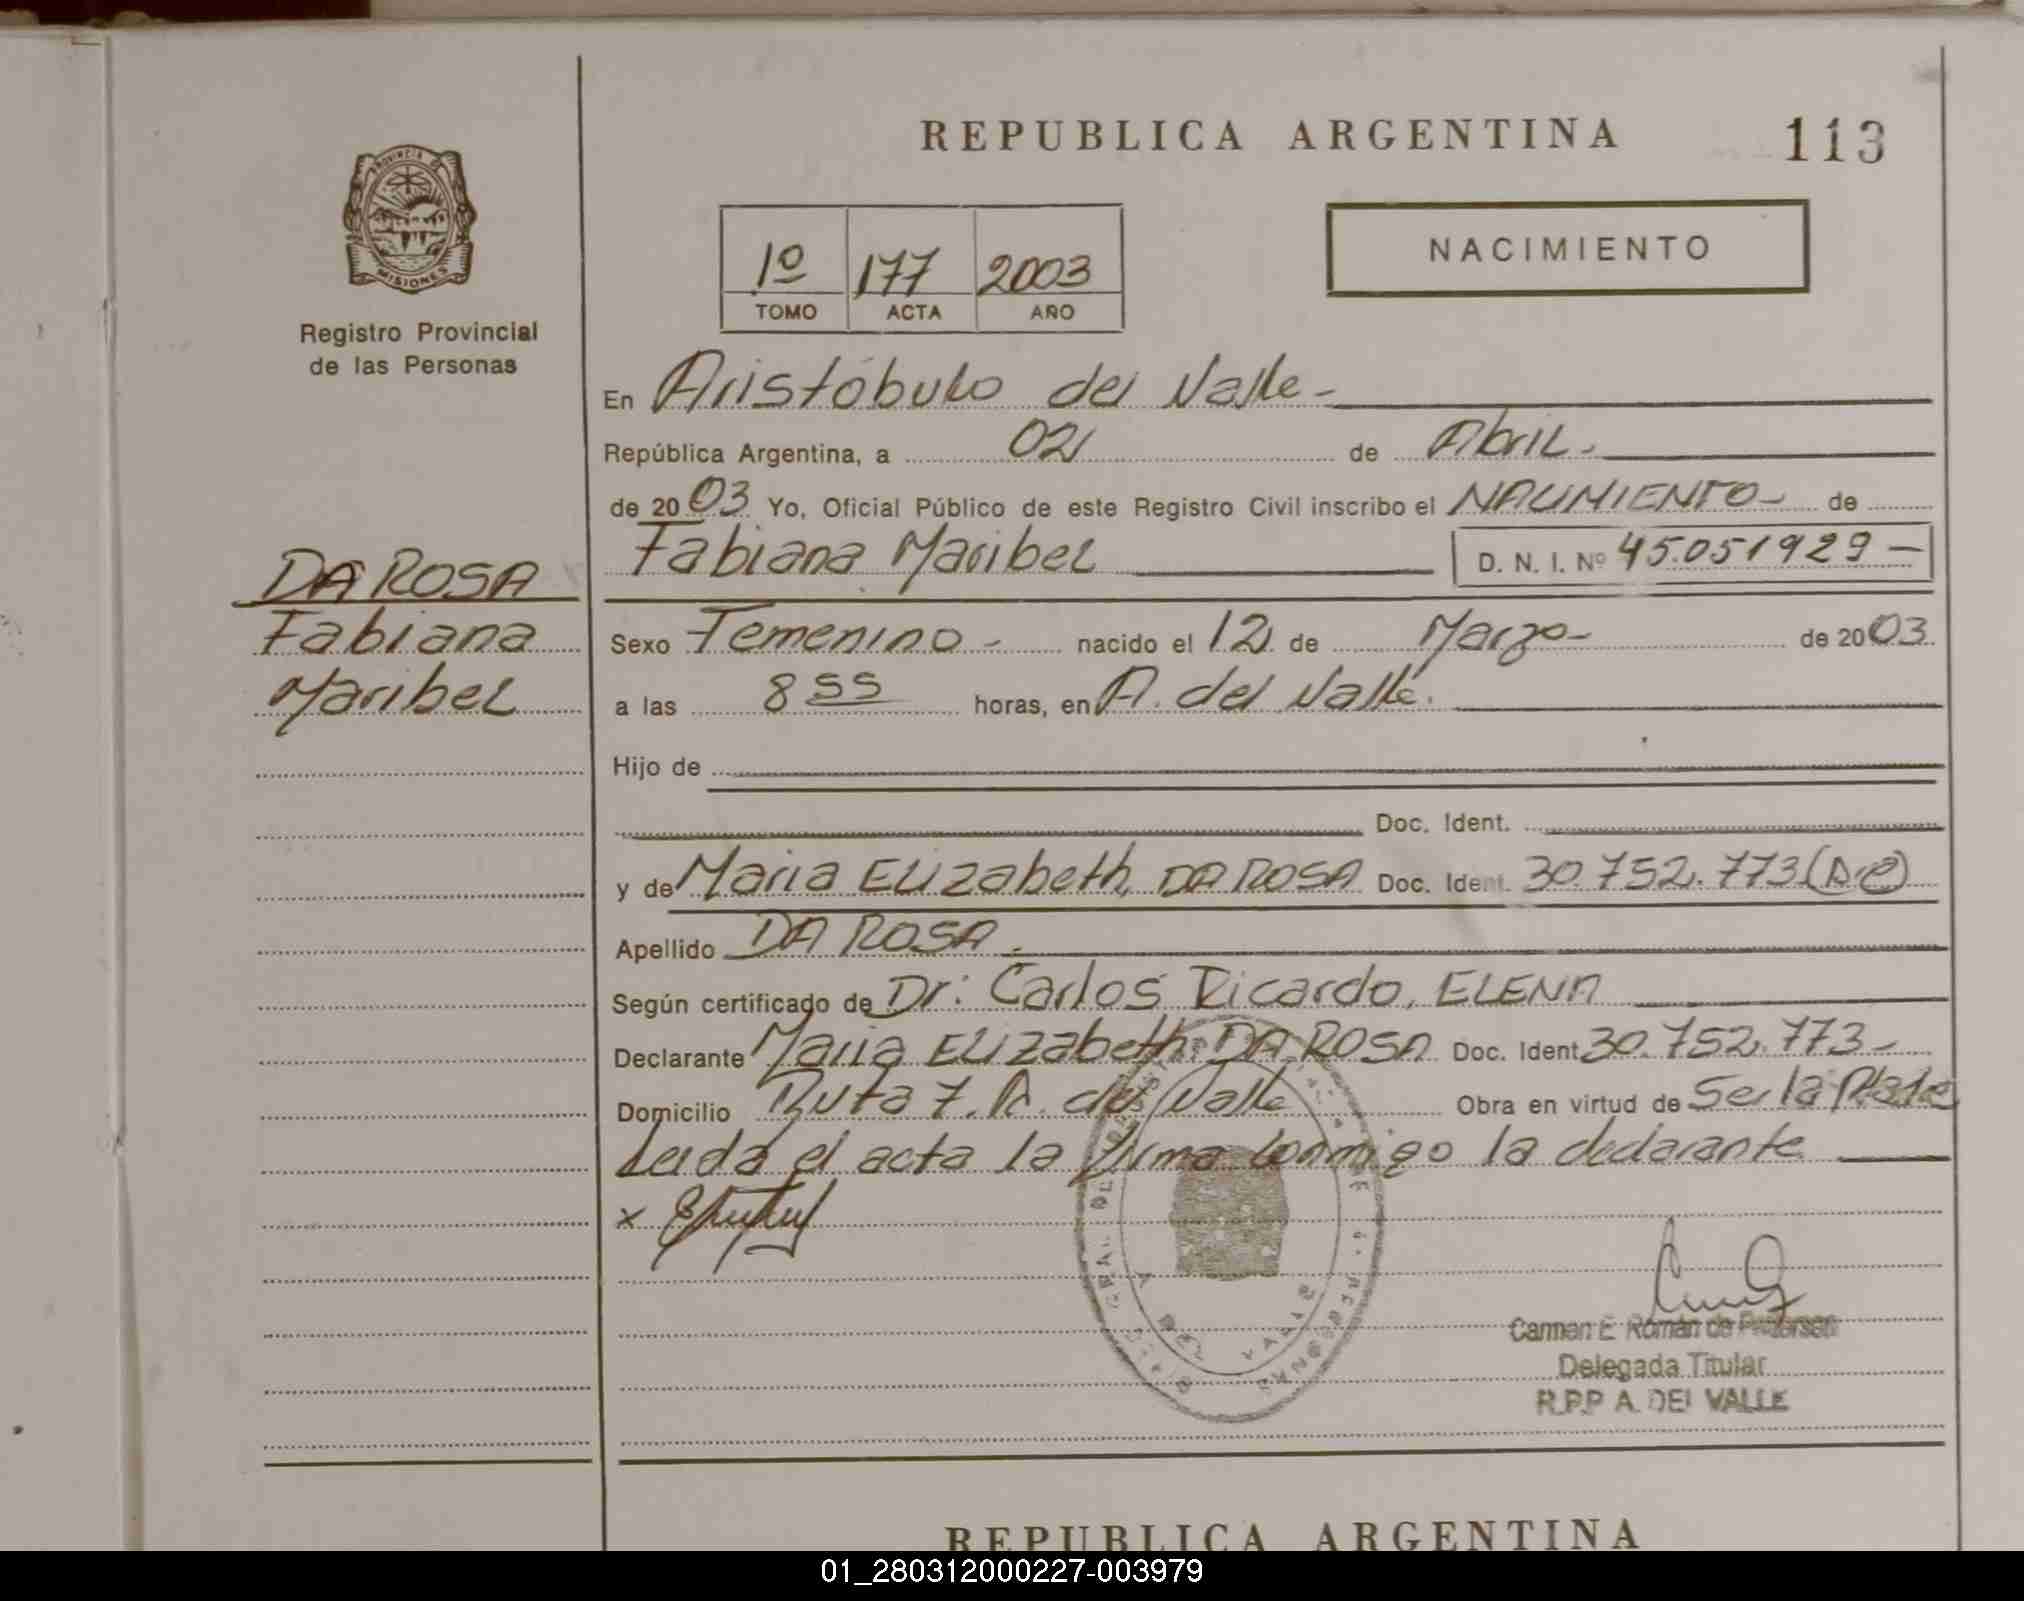 REPUBLICA ARGENTINA
113
PROVINCIA DE
MISIONES
Registro Provincial
de las Personas
1º 177 2003
TOMO ACTA AÑO
NACIMIENTO
En Aristóbulo del Valle -
República Argentina, a 02 de Abril.
de 2003 Yo, Oficial Público de este Registro Civil inscribo el NACIMIENTO - de
Fabiana Maribel D. N. I. Nº 45.051929 -
DA ROSA
Fabiana
Maribel
Sexo Femenino - nacido el 12 de Marzo - de 2003.
a las 8 55 horas, en A. del Valle.
Hijo de
Doc. Ident.
y de Maria Elizabeth, DA ROSA Doc. Ident. 30.752.773
Apellido DA ROSA.
Según certificado de Dr: Carlos Ricardo, ELENA
Declarante Maria Elizabeth, DA ROSA Doc. Ident 30.752.773 -
Domicilio Ruta 7. A. del Valle Obra en virtud de Ser la Madre
Leida el acta la firma conmigo la declarante.
x
A DEL VALLE
Carmen E. Román de Pedersen
Delegada Titular
R.P.P A. DEL VALLE
REPUBLICA ARGENTINA
01_280312000227-003979